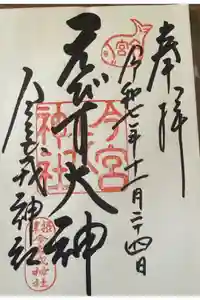 奉拝
令和七年十一月二十四日
えびす大神
今宮戎神社
今宮
神社